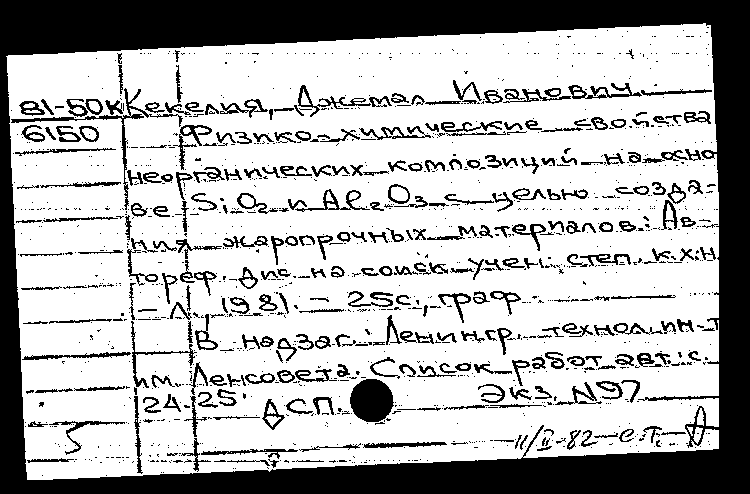 81-50К Кекелия, Джемал Иванович.
6150 Физико-химические свойства
неорганических композиций на осно
ве SiO₂ и Al₂O₃ с целью созда-
ния жаропрочных материалов: Ав-
тореф. дис на соиск. учен. степ. к.х.н
- Л., 1981. - 25с., граф.
В надзаг.: Ленингр. технол. ин-т
им. Ленсовета. Список работ авт: с.
24-25. ДСП. Экз. N97
5 11/II-82 с.т.